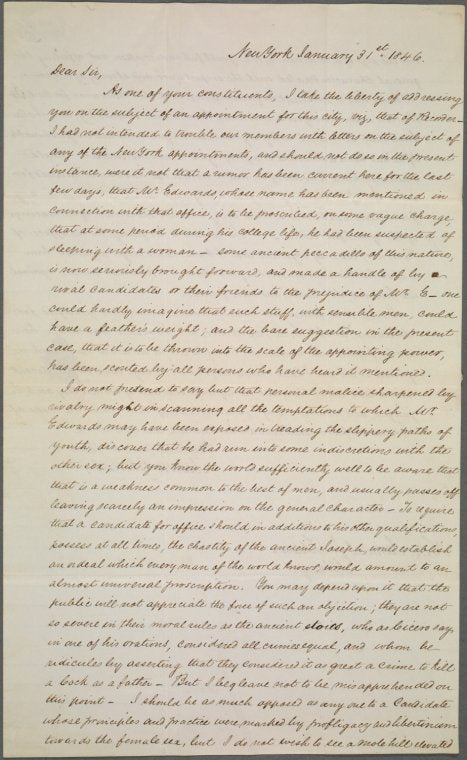 New York January 31st 1846.
Dear Sir,
As one of your constituents, I take the liberty of addressing
you on the subject of an appointment for this city, viz, that of Recorder—
I had not intended to trouble our members with letters on the subject of
any of the New York appointments, and should not do so in the present
instance, were it not that a rumor has been current here for the last
few days, that Mr Edwards, whose name has been mentioned in
connection with that office, is to be proscribed, on some vague charge,
that at some period during his college life, he had been suspected of
sleeping with a woman — some ancient peccadillo of this nature,
is now seriously brought forward, and made a handle of by
rival candidates or their friends to the prejudice of Mr E— one
could hardly imagine that such stuff, with sensible men, could
have a feather's weight; and the bare suggestion in the present
case, that it is to be thrown into the scale of the appointing power,
has been scouted by all persons who have heard it mentioned.
I do not pretend to say but that personal malice sharpened by
rivalry might in scanning all the temptations to which Mr
Edwards may have been exposed in treading the slippery paths of
youth, discover that he had run into some indiscretions with the
other sex; but you know the world sufficiently well to be aware that
that is a weakness common to the best of men, and usually passes off
leaving scarcely an impression on the general character — To require
that a candidate for office should in addition to his other qualifications,
possess at all times, the chastity of the ancient Joseph, would establish
an ordeal which every man of the world knows, would amount to an
almost universal proscription. You may depend upon it that the
public will not appreciate the force of such an objection; they are not
so severe in their moral rules as the ancient stoics, who as Cicero says
in one of his orations, considered all crimes equal, and whom he
ridicules by asserting that they considered it as great a crime to kill
a Cock as a father — But I beg leave not to be misapprehended on
this point — I should be as much opposed as any one to a Candidate
whose principles and practice were marked by profligacy and libertinism
towards the female sex, but I do not wish to see a mole hill elevated